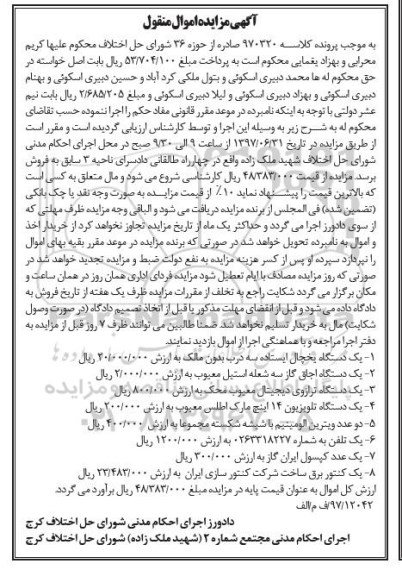 آگهی مزایده اموال منقول
به موجب پرونده کلاسه ۹۷۰۳۲۰ صادره از حوزه ۳۶ شورای حل اختلاف محکوم علیها کریم
محرابی و بهزاد یغمایی محکوم است به پرداخت مبلغ ۵۳/۷۰۴/۱۰۰ ریال بابت اصل خواسته در
حق محکوم له ها محمد دبیری اسکوئی و بتول ملکی کرد آباد و حسین دبیری اسکوئی و بهنام
دبیری اسکوئی و بهزاد دبیری اسکوئی و لیلا دبیری اسکوئی و مبلغ ۲/۶۸۵/۲۰۵ ریال بابت نیم
عشر دولتی با توجه به اینکه نامبرده در موعد مقرر قانونی مفاد حکم را اجرا ننموده حسب تقاضای
محکوم له به شرح زیر به وسیله این اجرا و توسط کارشناس ارزیابی گردیده است و مقرر است
از طریق مزایده در تاریخ ۱۳۹۷/۰۶/۳۱ از ساعت ۹ الی ۹/۳۰ صبح در محل اجرای احکام مدنی
شورای حل اختلاف شهید ملک زاده واقع در چهارراه طالقانی دادسرای ناحیه ۳ سابق به فروش
برسد مزایده از قیمت ۴۸/۳۸۳/۰۰۰ ریال کارشناسی شروع می شود و مال متعلق به کسی است
که بالاترین قیمت را پیشنهاد نماید ۱۰٪ از قیمت مزایده به صورت وجه نقد یا چک بانکی
(تضمین شده) فی المجلس از برنده مزایده دریافت می شود و الباقی وجه مزایده ظرف مهلتی که
از سوی دادورز اجرا می گردد و حداکثر یک ماه از تاریخ مزایده تجاوز نخواهد کرد از خریدار اخذ
و اموال به نامبرده تحویل خواهد شد در صورتی که برنده مزایده در موعد مقرر بقیه بهای اموال
را نپردازد سپرده او پس از کسر هزینه مزایده به نفع دولت ضبط و مزایده تجدید خواهد شد در
صورتی که روز مزایده مصادف با ایام تعطیل شود مزایده فردای اداری همان روز در همان ساعت و
مکان برگزار می گردد شکایت راجع به تخلف از مقررات مزایده ظرف یک هفته از تاریخ فروش به
دادگاه داده می شود و قبل از انقضای مهلت مذکور یا قبل از اتخاذ تصمیم دادگاه (در صورت وصول
شکایت) مال به خریدار تسلیم نخواهد شد. ضمنا طالبین می توانند ظرف ۷ روز قبل از مزایده به
دفتر اجرا مراجعه و با هماهنگی اجرا از اموال بازدید نمایند.
۱- یک دستگاه یخچال ایستاده سه درب بدون مالک به ارزش ۴۰/۰۰۰/۰۰۰ ریال
۲- یک دستگاه اجاق گاز سه شعله استیل معیوب به ارزش ۲/۰۰۰/۰۰۰ ریال
۳- یک دستگاه ترازوی دیجیتال معیوب محک به ارزش ۸۰۰/۰۰۰ ریال
۴- یک دستگاه تلویزیون ۱۴ اینچ مارک اطلس معیوب به ارزش ۲۰۰/۰۰۰ ریال
۵- دو عدد ویترین آلومینیم با شیشه شکسته مجموعا به ارزش ۴۰۰/۰۰۰ ریال
۶- یک تلفن به شماره ۰۲۶۳۳۱۸۲۲۷ به ارزش ۱۲۰۰/۰۰۰ ریال
۷- یک عدد کپسول ایران گاز به ارزش ۳۰۰/۰۰۰ ریال
۸- یک کنتور برق ساخت شرکت کنتور سازی ایران به ارزش ۲۳/۴۸۳/۰۰۰ ریال
ارزش کل اموال به عنوان قیمت پایه در مزایده مبلغ ۴۸/۳۸۳/۰۰۰ ریال برآورد می گردد.
۹۷/۱۲۰۴۲/ف م/الف
دادورز اجرای احکام مدنی شورای حل اختلاف کرج
اجرای احکام مدنی مجتمع شماره ۲ (شهید ملک زاده) شورای حل اختلاف کرج